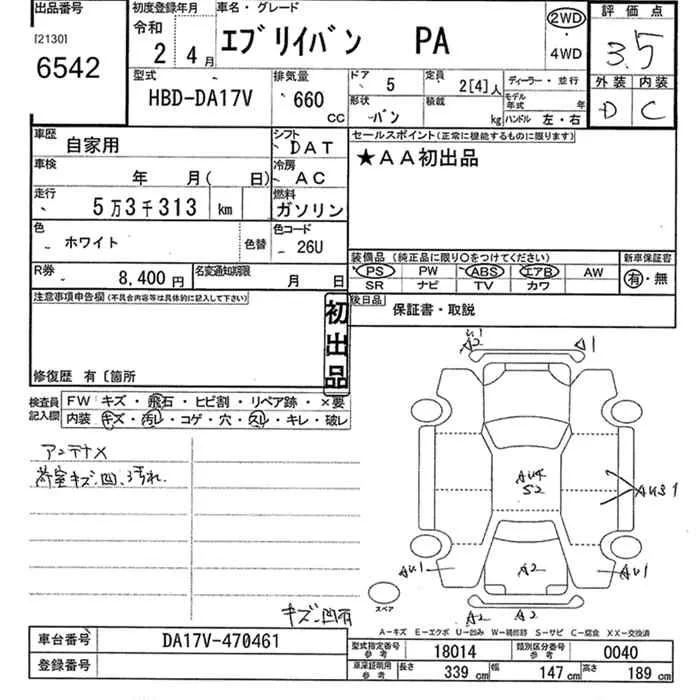 出品番号
[2130]
6542
初度登録年月
令和
2 4月
車名・グレード
エブリイバン PA
2WD
・
4WD
評価点
3.5
外装 内装
D C
型式
HBD-DA17V
排気量
660
CC
ドア 5
定員 2[4]人
ディーラー・並行
形状 バン
積載 kg
モデル年式 年
ハンドル 左・右
車歴 自家用
シフト DAT
車検 年 月( 日)
冷房 AC
走行 5万3千313 km
燃料 ガソリン
色 ホワイト 色替
色コード 26U
R券 8,400円
名変通知期限 月 日
セールスポイント(正常に機能するものに限ります)
★AA初出品
装備品(純正品に限り○をつけてください)
新車保証書
PS PW ABS エアB AW
SR ナビ TV カワ
有・無
後日品
保証書・取説
注意事項申告欄(不具合内容等は具体的に記入して下さい)
初出品
修復歴 有〔箇所
検査員記入欄
FW キズ・飛石・ヒビ割・リペア跡・×要
内装 キズ・汚レ・コゲ・穴・スレ・キレ・破レ
アンテナX
荷室キズ、凹、汚れ
キズ、凹有
A2
A1
AU4
S2
AU31
AU1
AU1
A2
A2 A2
スペア
A-キズ E-エクボ U-凹み W-補修跡 S-サビ C-腐食 XX-交換済
車台番号 DA17V-470461
登録番号
型式指定番号 参考 18014
類別区分番号 参考 0040
車庫証明用 参考
長さ 339 cm
幅 147 cm
高さ 189 cm